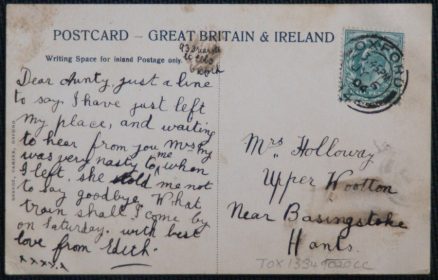 POSTCARD – GREAT BRITAIN & IRELAND
Writing Space for Inland Postage only.
Dear Aunty, just a line
to say, I have just left
my place, and waiting
to hear from you Mrs
was very nasty to me when
I left. she told me not
to say goodbye. What
train shall I come by
on Saturday. with best
love from Edith.
x x x x x
OXFORD
Mrs Holloway
Upper Wootton
Near Basingstoke
Hants.